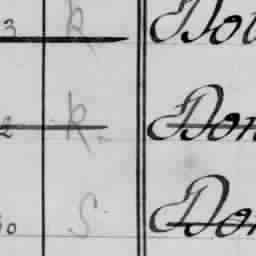 3 R Do
2 R. Don
0 S Don